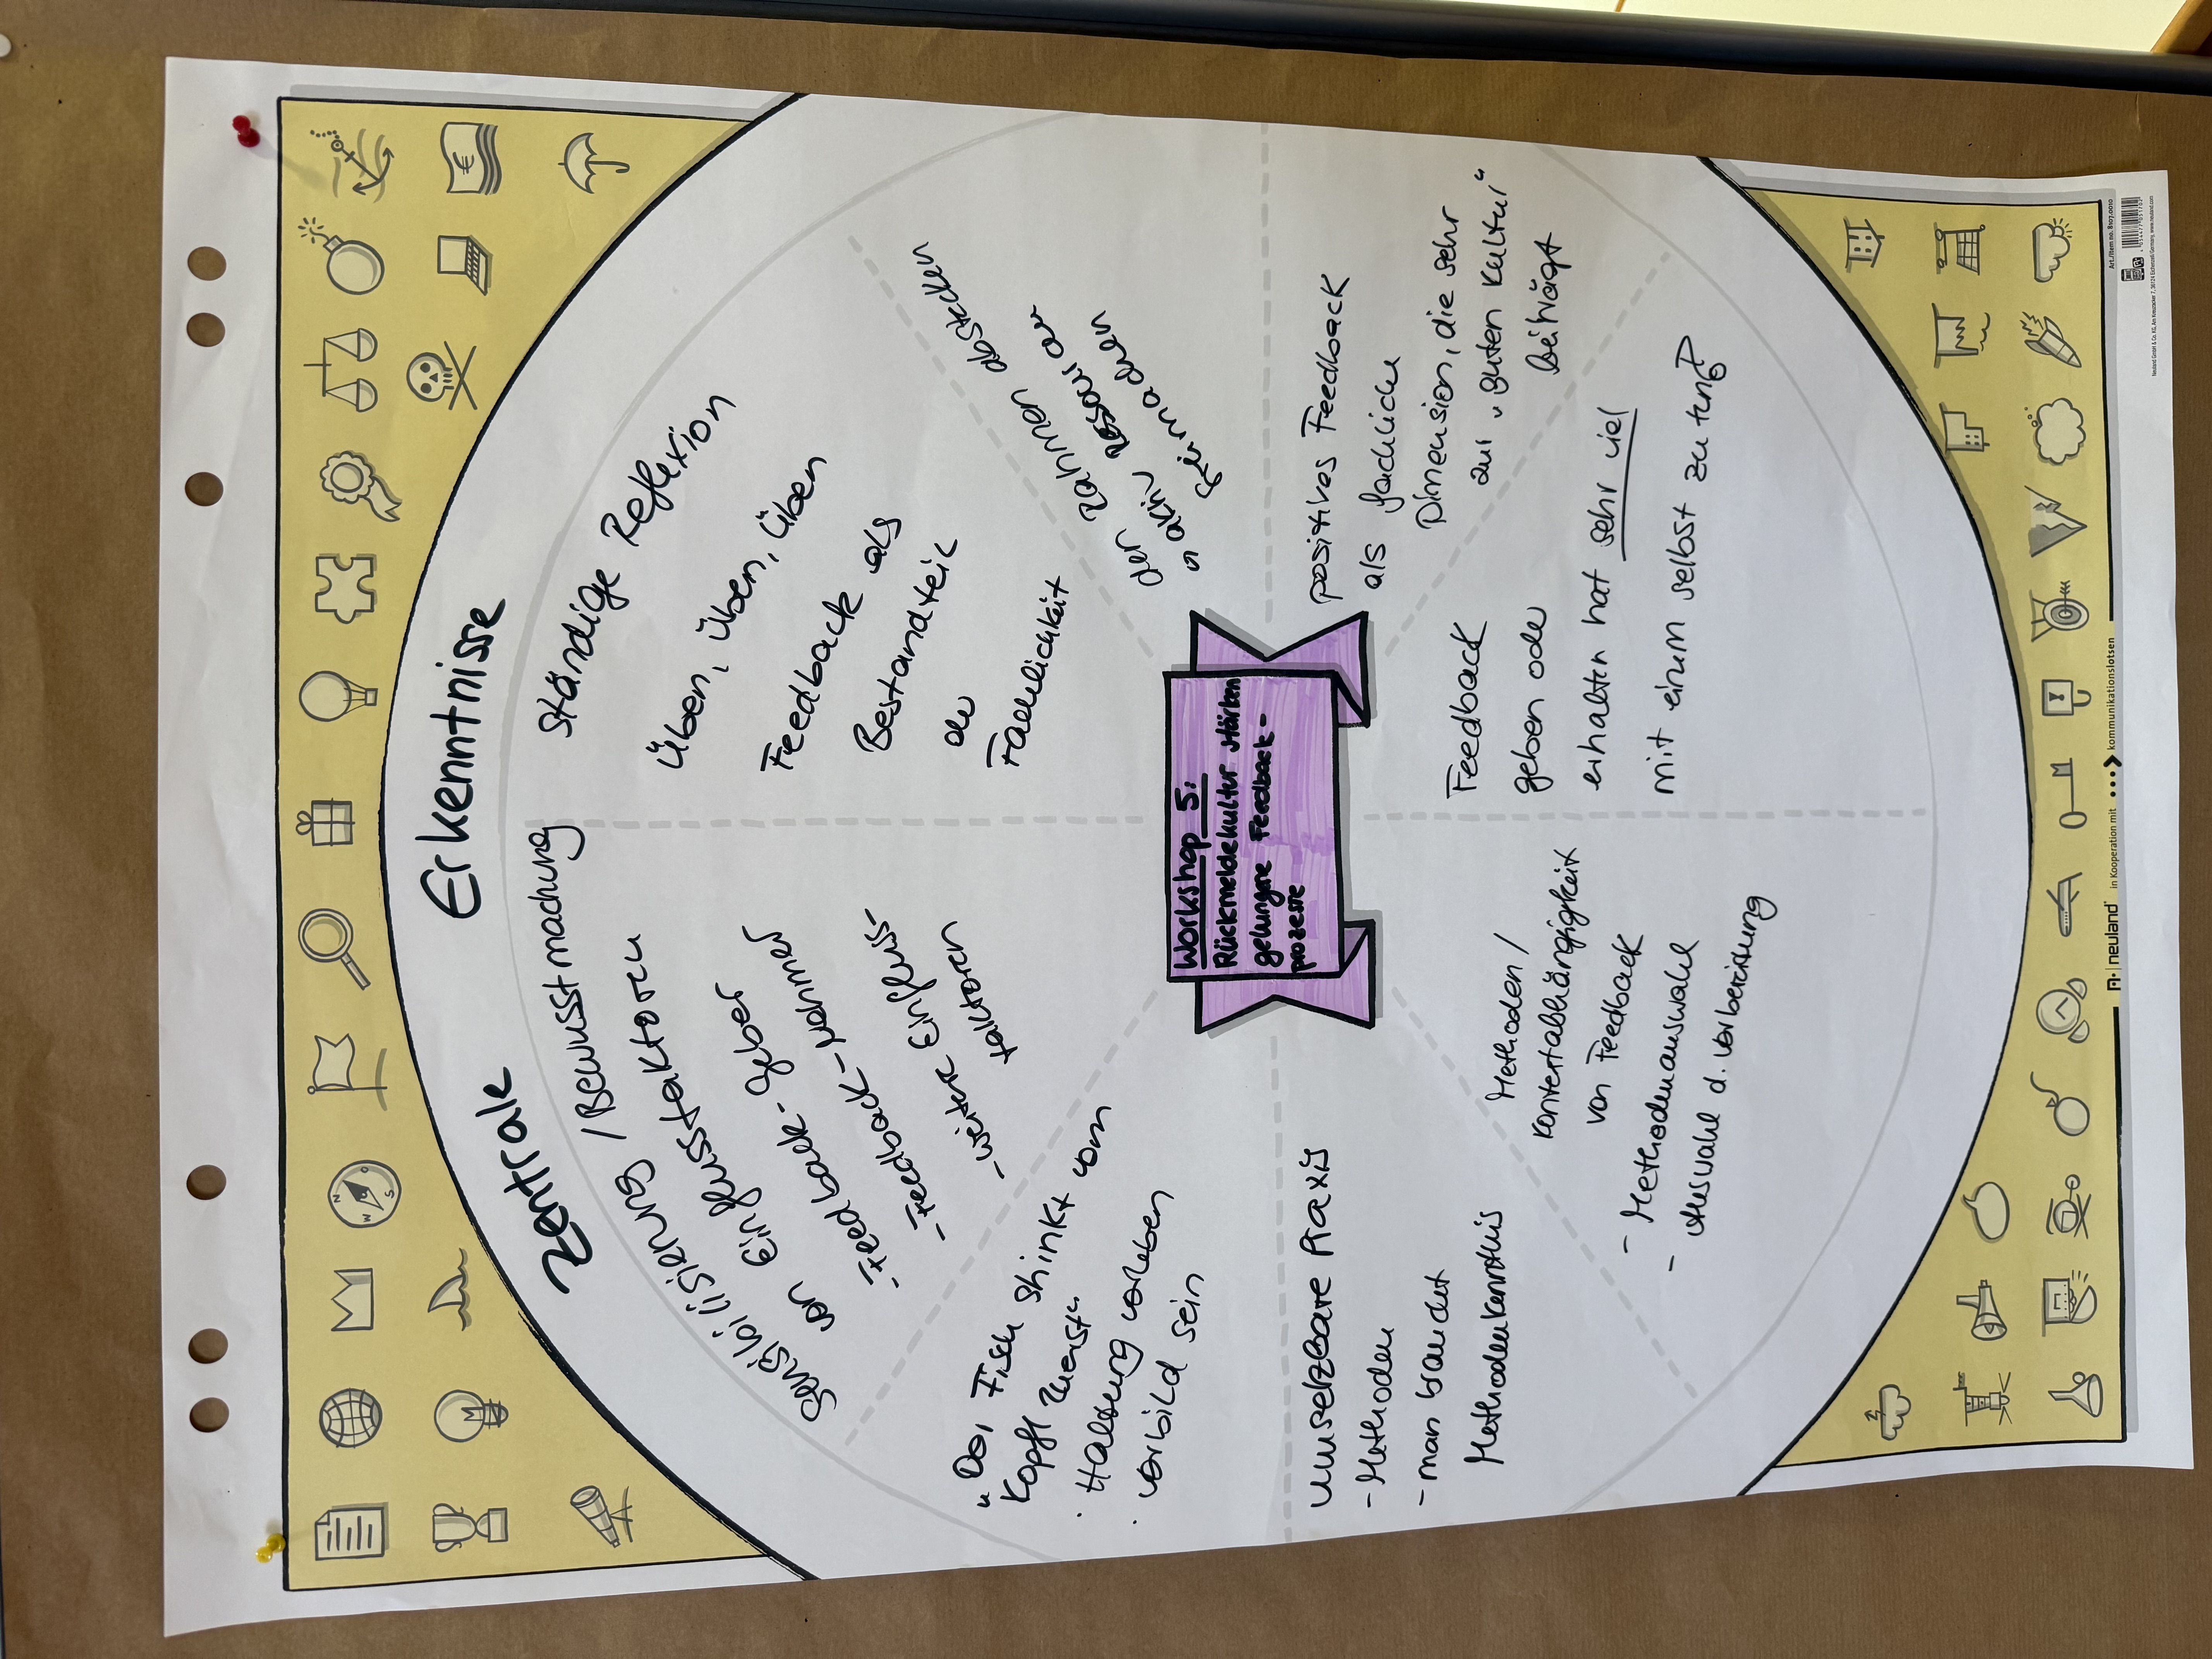 Zentrale Erkenntnisse
Workshop 5:
Rückmeldekultur stärken
gelungene Feedback-
prozesse
Ständige Reflexion
Üben, Üben, Üben
Feedback als
Bestandteil
der
Fachlichkeit
den Rahmen abstecken
aktiv
positives Feedback
als fachliche
Dimension, die sehr
zur "guten Kultur"
beiträgt
Feedback
geben oder
erhalten hat sehr viel
mit einem selbst zu tun
Methoden /
Kontextabhängigkeit
von Feedback
- Methodenauswahl
- Auswahl d. Vorbereitung
umsetzbare Praxis
- Methoden
- man braucht
Methodenkenntnis
"Der Fisch stinkt vom
Kopf zuerst"
· Haltung vorleben
· Vorbild sein
Sensibilisierung / Bewusstmachung
von Einflussfaktoren
- Feedback-Geber
- Feedback-Nehmer
- weitere Einfluss-
faktoren
neuland
in Kooperation mit kommunikationslotsen
Art./Item no. 8107.0010
€
N
W
S